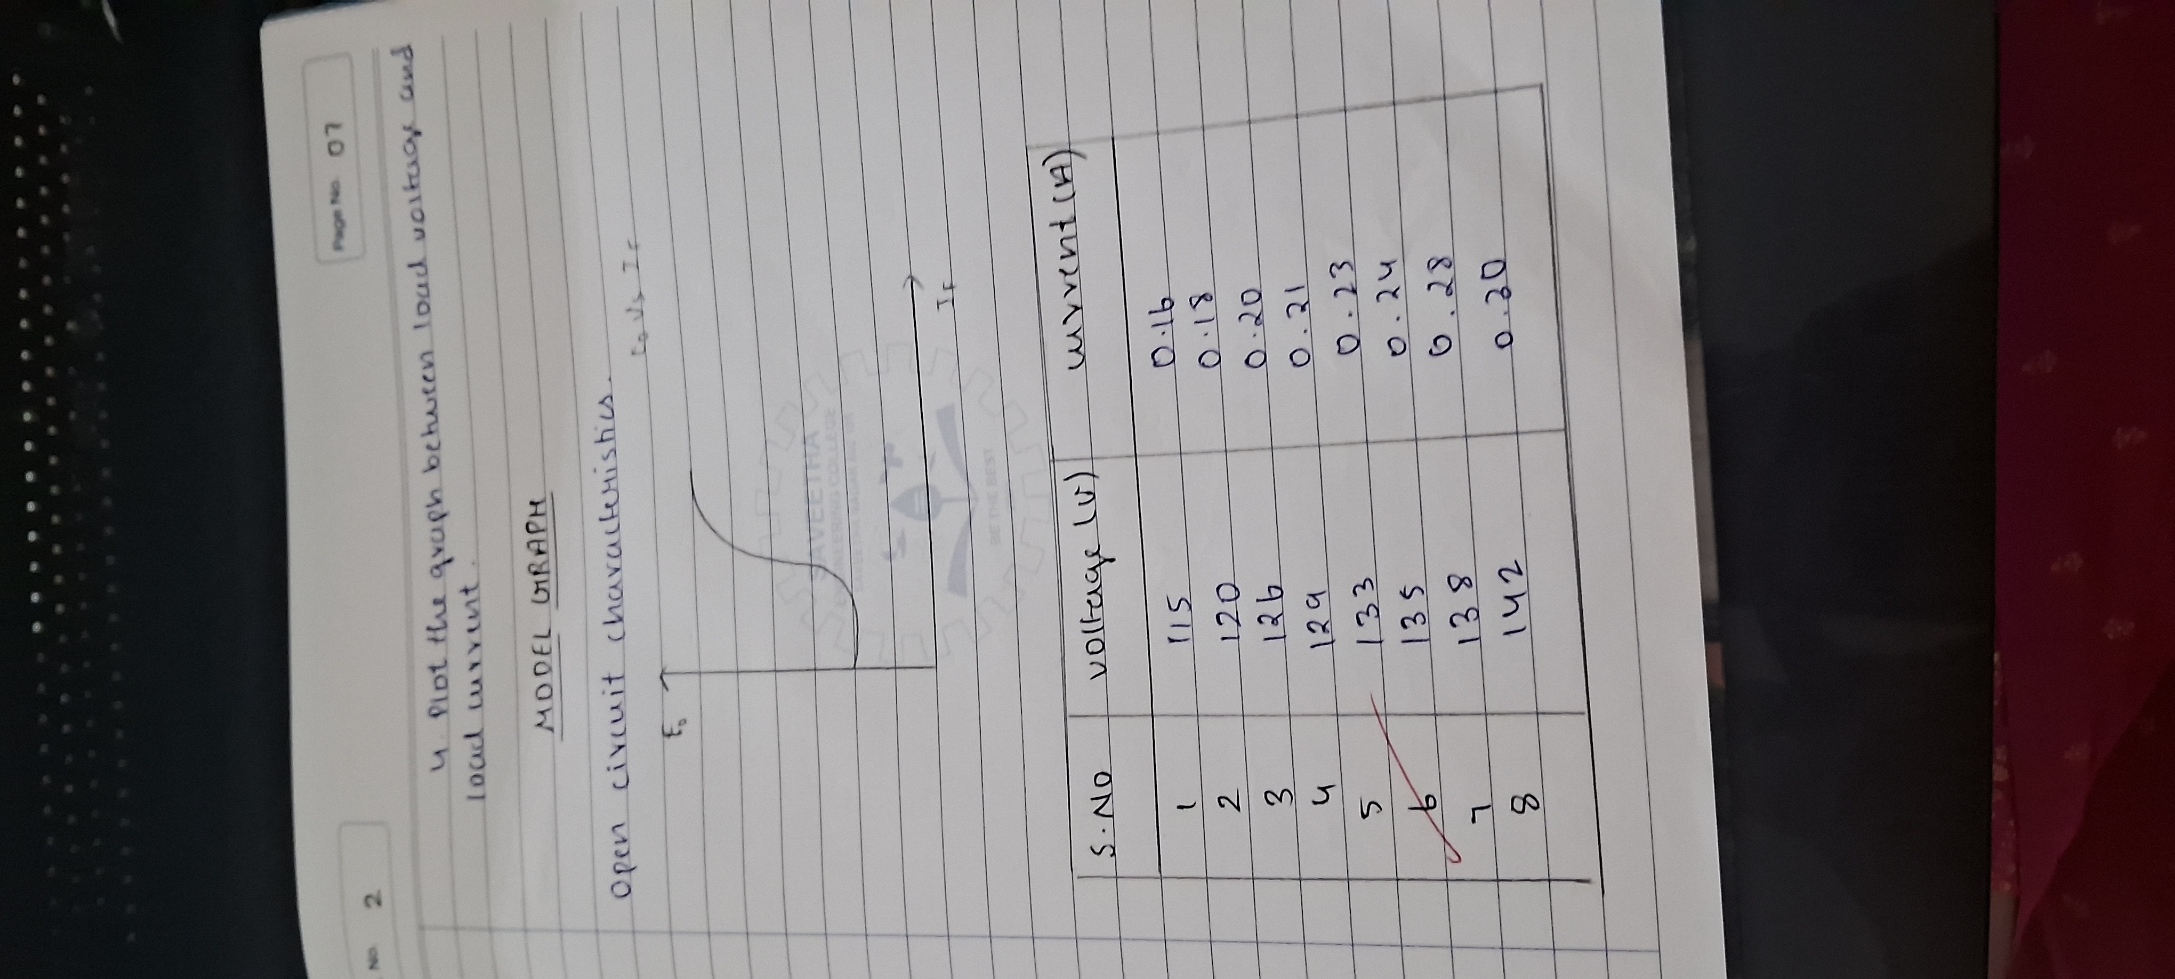 No. 2
Page No. 07
4. Plot the graph between load voltage and
load current.
MODEL GRAPH
Open circuit characteristics.
E₀ Vs IF
E₀
SAVEETHA
ENGINEERING COLLEGE
IF
BE THE BEST
S.NO voltage (V) current (A)
1 115 0.16
2 120 0.18
3 126 0.20
4 129 0.21
5 133 0.23
6 135 0.24
7 138 0.28
8 142 0.30